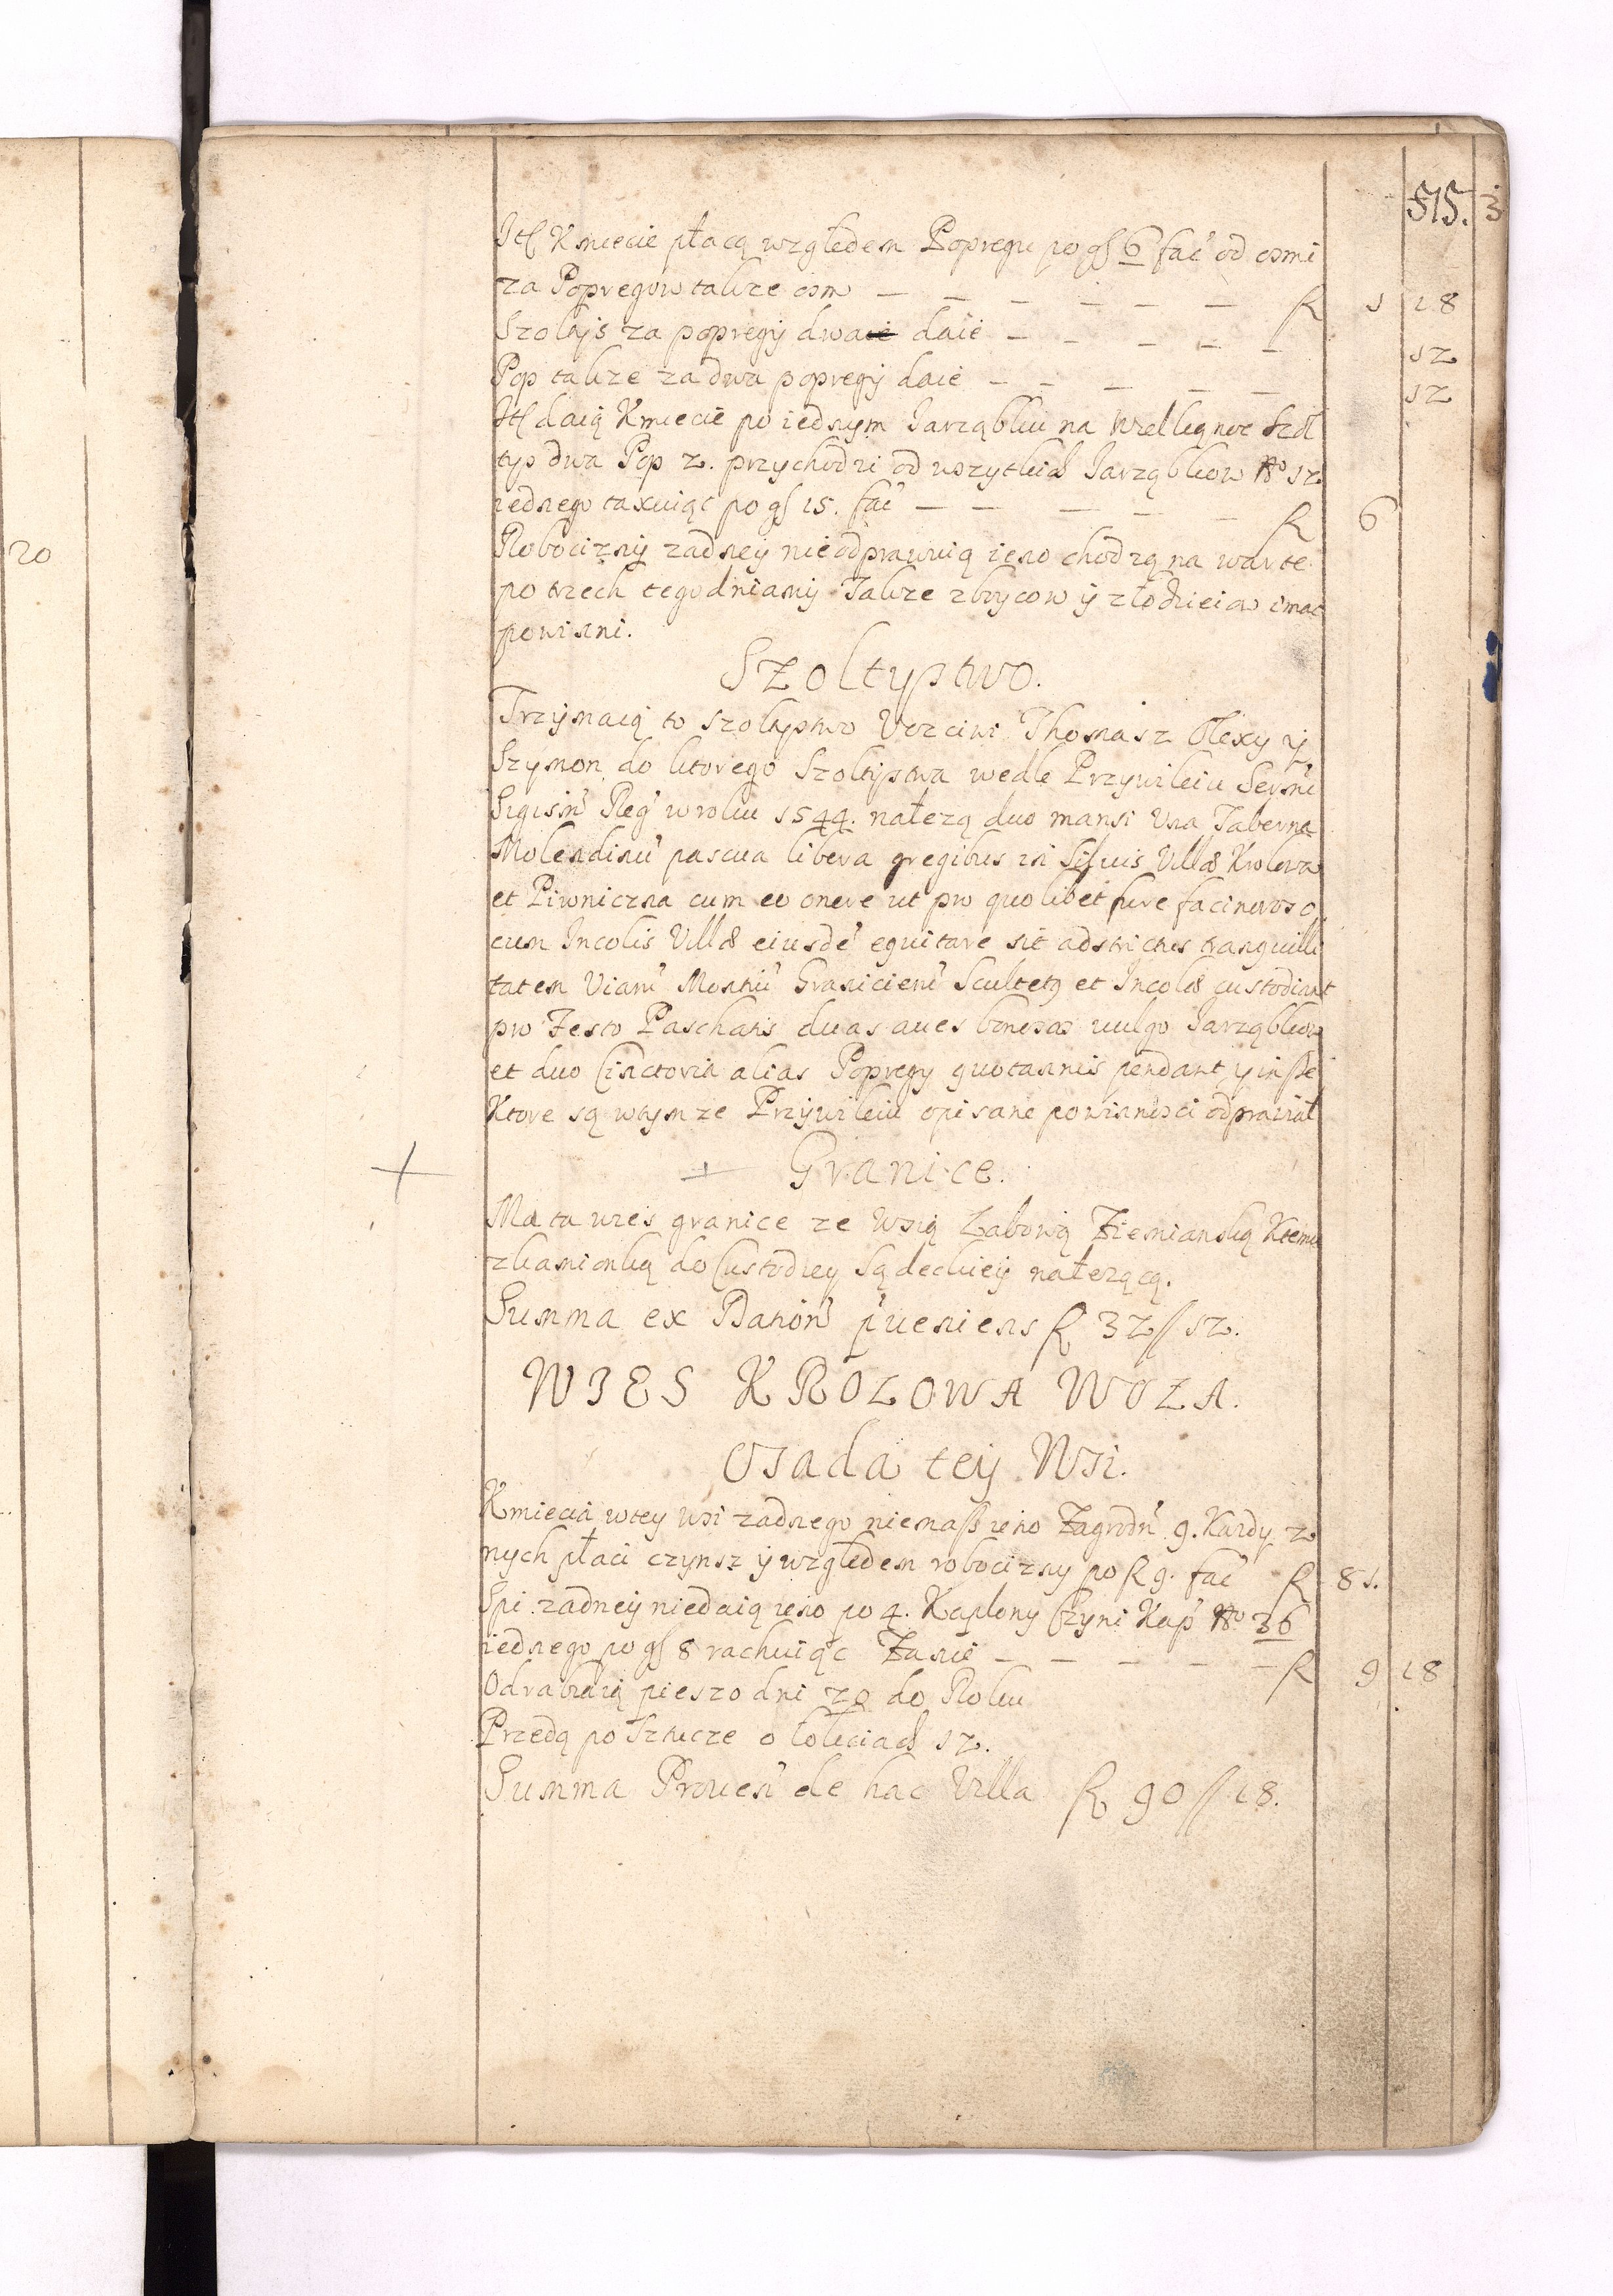 515. 3
It̃ Kmiecie płacą względem Popręgu po gſ 6 fać od osmi
za Popręgow także osm — — — — — — R 1 18
Szołtys za popręgÿ dwa daie — — — — — 12
Pop także za dwa popręgÿ daie — — — — — 12
It̃ daią Kmiecie po iednym Iarząbku na Wielkąnoc Szoł
tys dwa Pop 2. przychodzi od wszytkich Iarząbkow No 12
iednego taxuiąc po gſ 15. fać — — — — — R 6
20
Robociznÿ zadneÿ nieodprawuią ieno chodzą na warte
po trzech tegodniamÿ Takze zbÿcow ÿ złodzieiow imac
powinni.
Szoltystwo.
Trzÿmaią to Szołtystwo Uczciwi Thomasz Olexy ÿ
Szÿmon do ktorego Szołtÿstwa wedle Przywileiu Sersmi
Sigism' Reg' w roku 1544. należą duo mansi Una Taberna
Molendinu' pascua libera gregibus in Siluis Villæ Krolowa
et Piwniczna cum eo onere ut pro quolibet fure facinoroso
cum Incolis Villæ eiusde' equitare sit adstrictus tranquilli
tatem Viaru' Montiu' Graniciens' Scultetq et Incolæ custodiant
pro Festo Paschatis duas aues bonasas vulgo Iarząbkow
et duo Cinctoria alias Popręgÿ quotannis pendant, y insze
Ktore są wtym ze Przÿwileiu opisane powinnosci odprawiać
+ + Granice.
Ma ta wies granice ze Wsią Łabową Ziemianską Ktemu
zKamionką do Custodiey Sądeckieÿ należącą.
Summa ex Dation' p'ueniens R 32 // 12.
WIES KROLOWA WOLA.
Osada teÿ Wsi.
Kmiecia wtey wsi zadnego niemasz ieno Zagrodn' 9. Kazdy z
nych płaci czynsz ÿ względem robociznÿ po R 9. fać R 81.
Spi zadneÿ niedaią ieno po 4. Kapłony Czyni Kap' No 36
iednego po gſ 8 rachuiąc Zanie — — — — — R 9 18
Odrabiaią pieszo dni 20 do Roku
Przedą po Sztucze o łokciach 12.
Summa Prouen' de hac Villa R 90 // 18.